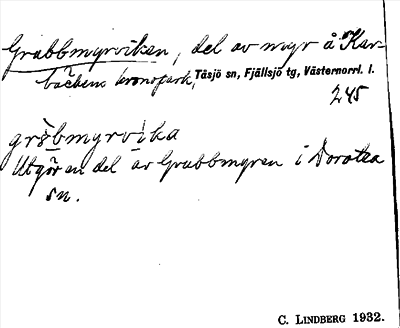 Grubbmyrviken, del av myr å Kar-
bäckens kronopark, Tåsjö sn, Fjällsjö tg, Västernorrl. l.
245
grŭbmyrvika
Utgör en del av Grubbmyren i Dorotea
sn.
C. LINDBERG 1932.